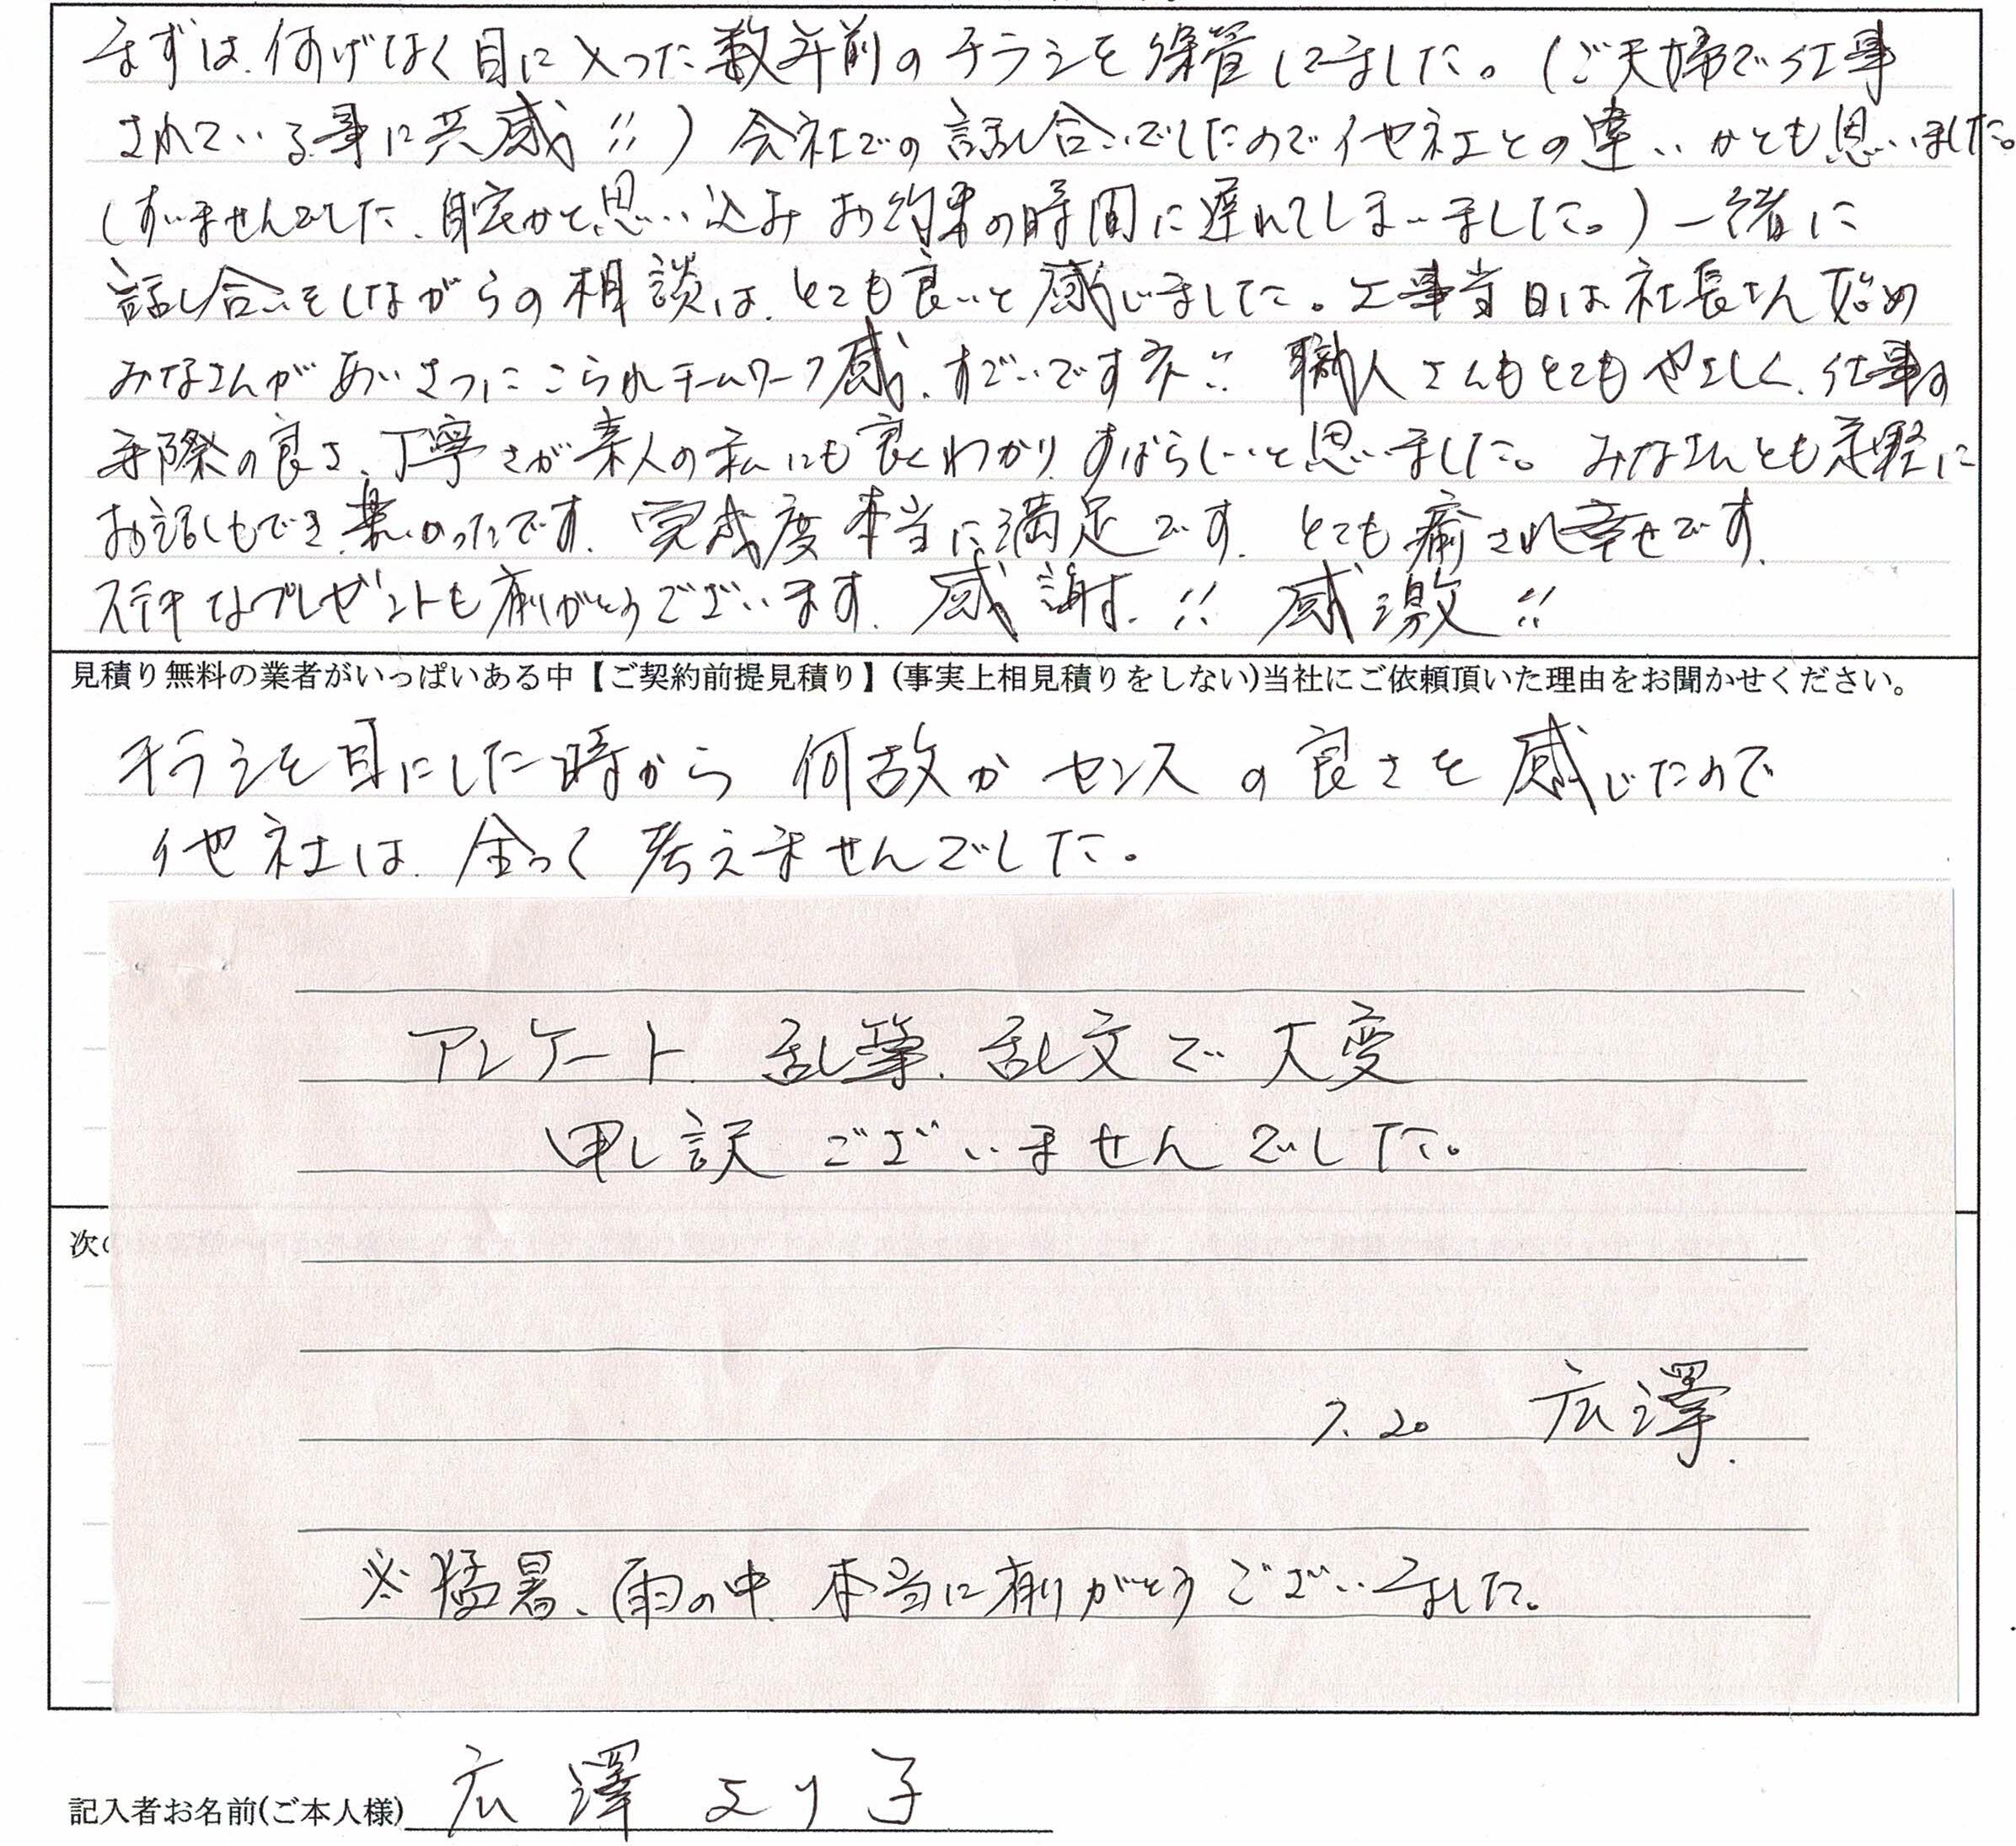 まずは、何げなく目に入った数年前のチラシを保管してました。(ご夫婦で仕事
されている事に共感!!) 会社での話し合いでしたので他社との違いかとも思いました。
(すいませんでした、自宅かと思い込みお約束の時間に遅れてしまいました。) 一緒に
話し合いをしながらの相談は、とても良いと感じました。工事当日は社長さん始め
みなさんがあいさつにこられチームワーク感、すごいですネ!! 職人さんもとてもやさしく、仕事の
手際の良さ、丁寧さが素人の私にも良くわかり、すばらしいと思いました。みなさんとも気軽に
お話しもでき、楽しかったです。完成度本当に満足です。とても癒され幸せです。
ステキなプレゼントも有りがとうございます。感謝!! 感激!!
見積り無料の業者がいっぱいある中【ご契約前提見積り】(事実上相見積りをしない)当社にご依頼頂いた理由をお聞かせください。
チラシを目にした時から 何故かセンスの良さを感じたので
他社は、全って考えませんでした。
アンケート、乱筆、乱文で大変
申し訳ございませんでした。
次
7.20 広澤.
※猛暑、雨の中、本当に有りがとうございました。
記入者お名前(ご本人様) 広澤より子